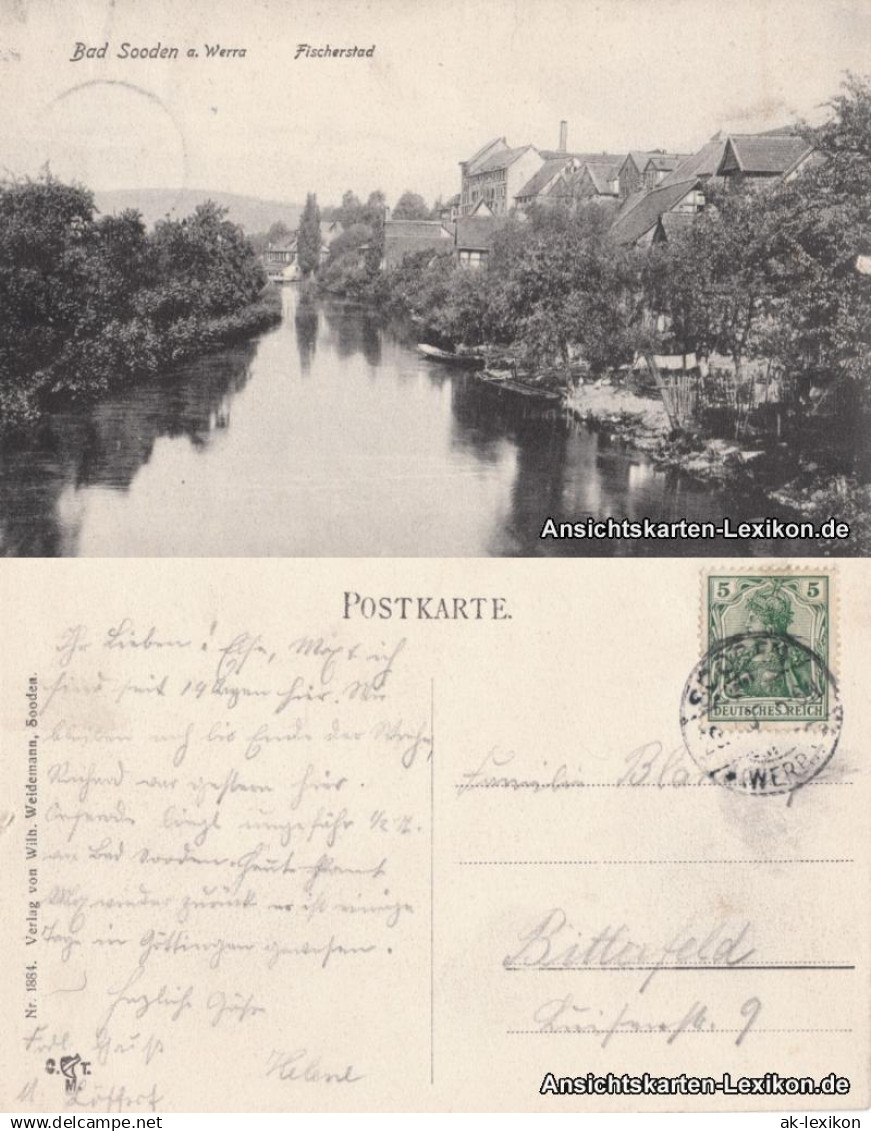 Bad Sooden a. Werra Fischerstad
Ansichtskarten-Lexikon.de
POSTKARTE.
5 5
DEUTSCHES REICH
SOODEN
(WERRA)
Ihr Lieben! Else, Max, ich
sind seit 14 Tagen hier. Wir
bleiben noch bis Ende der Woche,
Richard war gestern hier.
liegt ungefähr 1/2
an Bad Sooden. Heute kommt
Max wieder zurück er ist einige
Tage in Göttingen gewesen.
Herzliche Grüße
Helene
Nr. 1884. Verlag von Wilh. Weidemann, Sooden.
C. T.
M.
Familie
Bitterfeld
Luisenstr. 9
Ansichtskarten-Lexikon.de
ak-lexikon